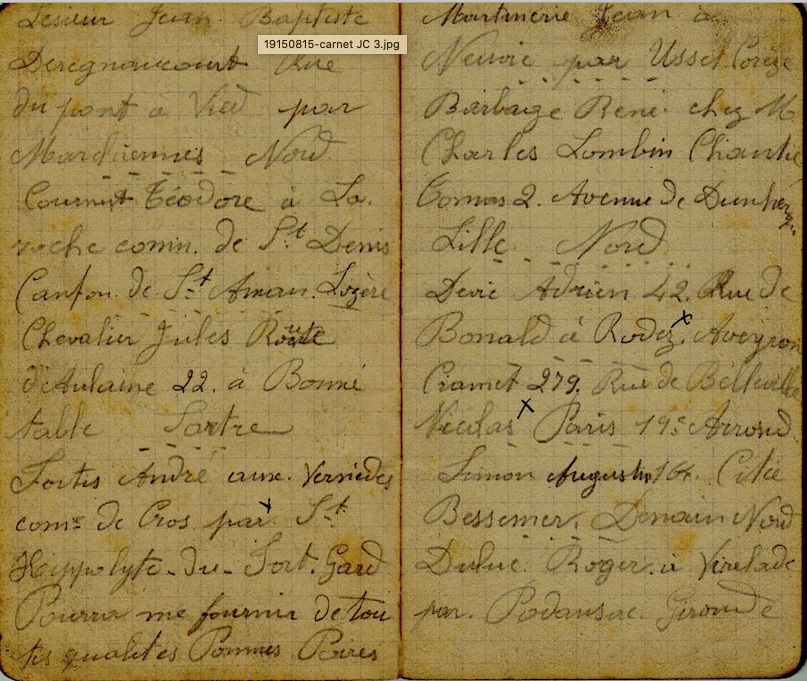 Lesieur Jean Baptiste
19150815-carnet JC 3.jpg
Deregnaucourt Rue
du pont à Vred par
Marchiennes Nord
Téodore à La.
roche comn. de St Denis
Canton de St Aman. Lozère
Chevalier Jules Route
d'Aulaine 22. à Bonné
table Sartre
Fortis André aux. Verniedes
come de Cros par St
Hyppolyte-du-Fort. Gard
Pourra me fournir de tou
tes qualités Pommes Poires
Martinerie Jean à
Neuvic par Ussel Corèze
Barbaize René. chez M.
Charles Lombin
2. Avenue de
Lille. Nord
Devic Adrien 42. Rue de
Bonald à Rodez. Aveyron
Cramet 279. Rue de Belleville
Nicolas Paris 19e Arrond
Simon Augustin 164. Cité
Bessemer. Denain Nord
Duluc Roger. à Virelade
par. Podansac. Gironde